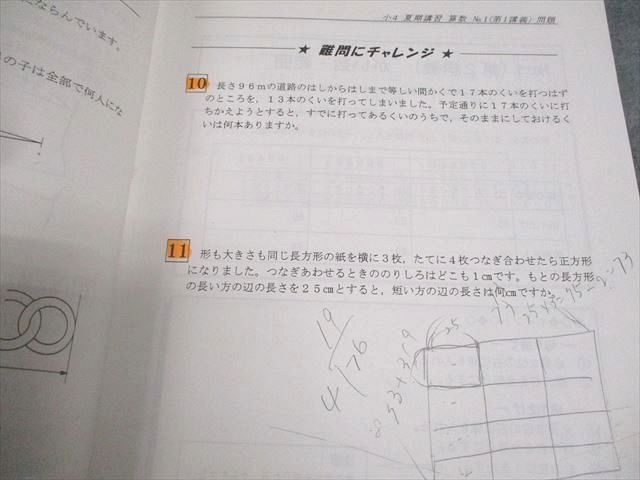 にならんでいます。
の子は全部で何人にな
小4 夏期講習 算数 №1(第1講義) 問題
★ 難問にチャレンジ ★
10 長さ96mの道路のはしからはしまで等しい間かくで17本のくいを打つはず
のところを，13本のくいを打ってしまいました。予定通りに17本のくいに打
ちかえようとすると，すでに打ってあるくいのうちで，そのままにしておけるく
いは何本ありますか。
11 形も大きさも同じ長方形の紙を横に3枚，たてに4枚つなぎ合わせたら正方形
になりました。つなぎあわせるときののりしろはどこも1cmです。もとの長方形
の長い方の辺の長さを25cmとすると，短い方の辺の長さは何cmですか。
73
25×3=75-2=73
25
19
4)76
73+3
19